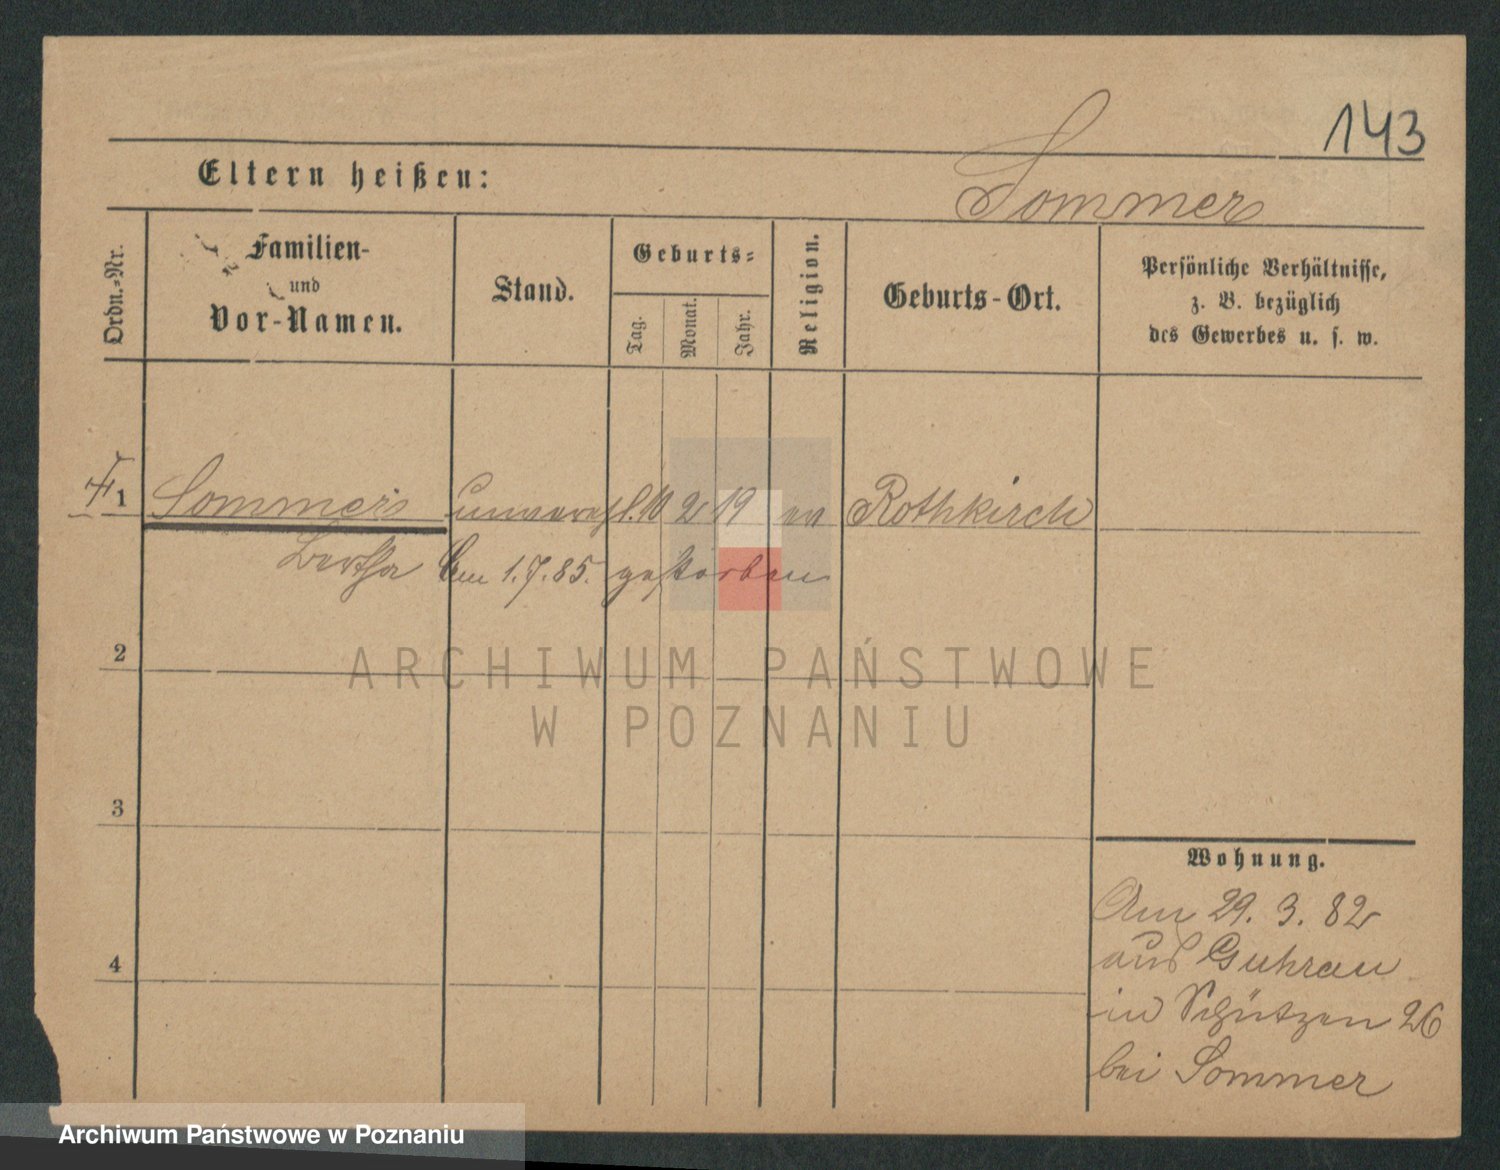 143
Eltern heißen:
Sommer
Ordn.-Nr.
Familien-
und
Vor-Namen.
Stand.
Geburts-
Tag.
Monat.
Jahr.
Religion.
Geburts-Ort.
Persönliche Verhältnisse,
z. B. bezüglich
des Gewerbes u. s. w.
1 Sommer unverehl. 10 2 19 ev Rothkirch
Bertha Am 1.7.85. gestorben
2
3
4
Wohnung.
Am 29. 3. 82
aus Guhrau
in Schützen 26
bei Sommer
ARCHIWUM PAŃSTWOWE
W POZNANIU
Archiwum Państwowe w Poznaniu